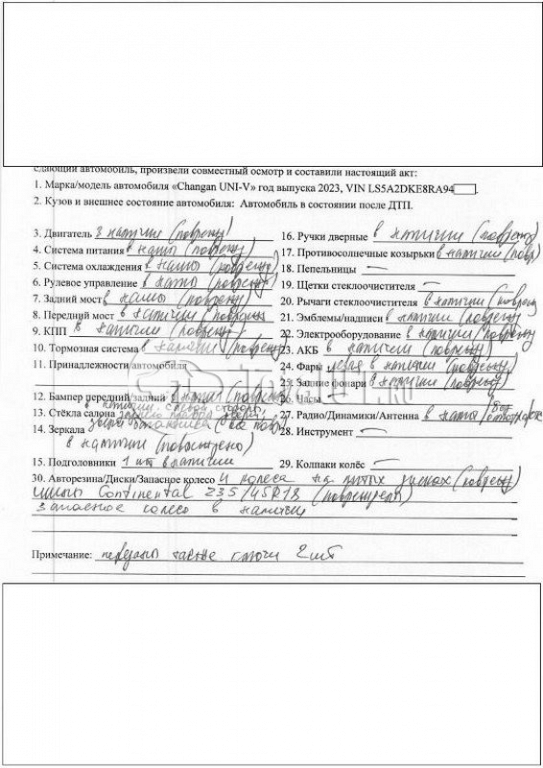 сдающий автомобиль, произвели совместный осмотр и составили настоящий акт:
1. Марка/модель автомобиля «Changan UNI-V» год выпуска 2023, VIN LS5A2DKE8RA94
2. Кузов и внешнее состояние автомобиля: Автомобиль в состоянии после ДТП.
3. Двигатель в наличии (поврежд)
4. Система питания в налич (поврежд)
5. Система охлаждения в налич (поврежд)
6. Рулевое управление в налич (поврежд)
7. Задний мост в налич (поврежд)
8. Передний мост в наличии (поврежд)
9. КПП в наличии (поврежд)
10. Тормозная система в наличии (поврежд)
11. Принадлежности автомобиля
12. Бампер передний/задний в наличии (поврежд)
13. Стёкла салона
14. Зеркала
в наличии (повреждено)
15. Подголовники 1 шт в наличии
16. Ручки дверные в наличии (поврежд)
17. Противосолнечные козырьки в наличии (повр)
18. Пепельницы —
19. Щетки стеклоочистителя —
20. Рычаги стеклоочистителя в наличии (поврежд
21. Эмблемы/надписи в наличии (поврежд)
22. Электрооборудование в наличии (поврежд)
23. АКБ в наличии (поврежд)
24. Фары левая в наличии (поврежд)
25. Задние фонари в наличии (поврежд)
26. Часы
27. Радио/Динамики/Антенна в налич
28. Инструмент —
29. Колпаки колёс —
30. Авторезина/Диски/Запасное колесо 4 колеса на литых дисках (поврежд)
шины Continental 235/45R18 (поврежден)
запасное колесо в наличии
Примечание: ключи 2 шт